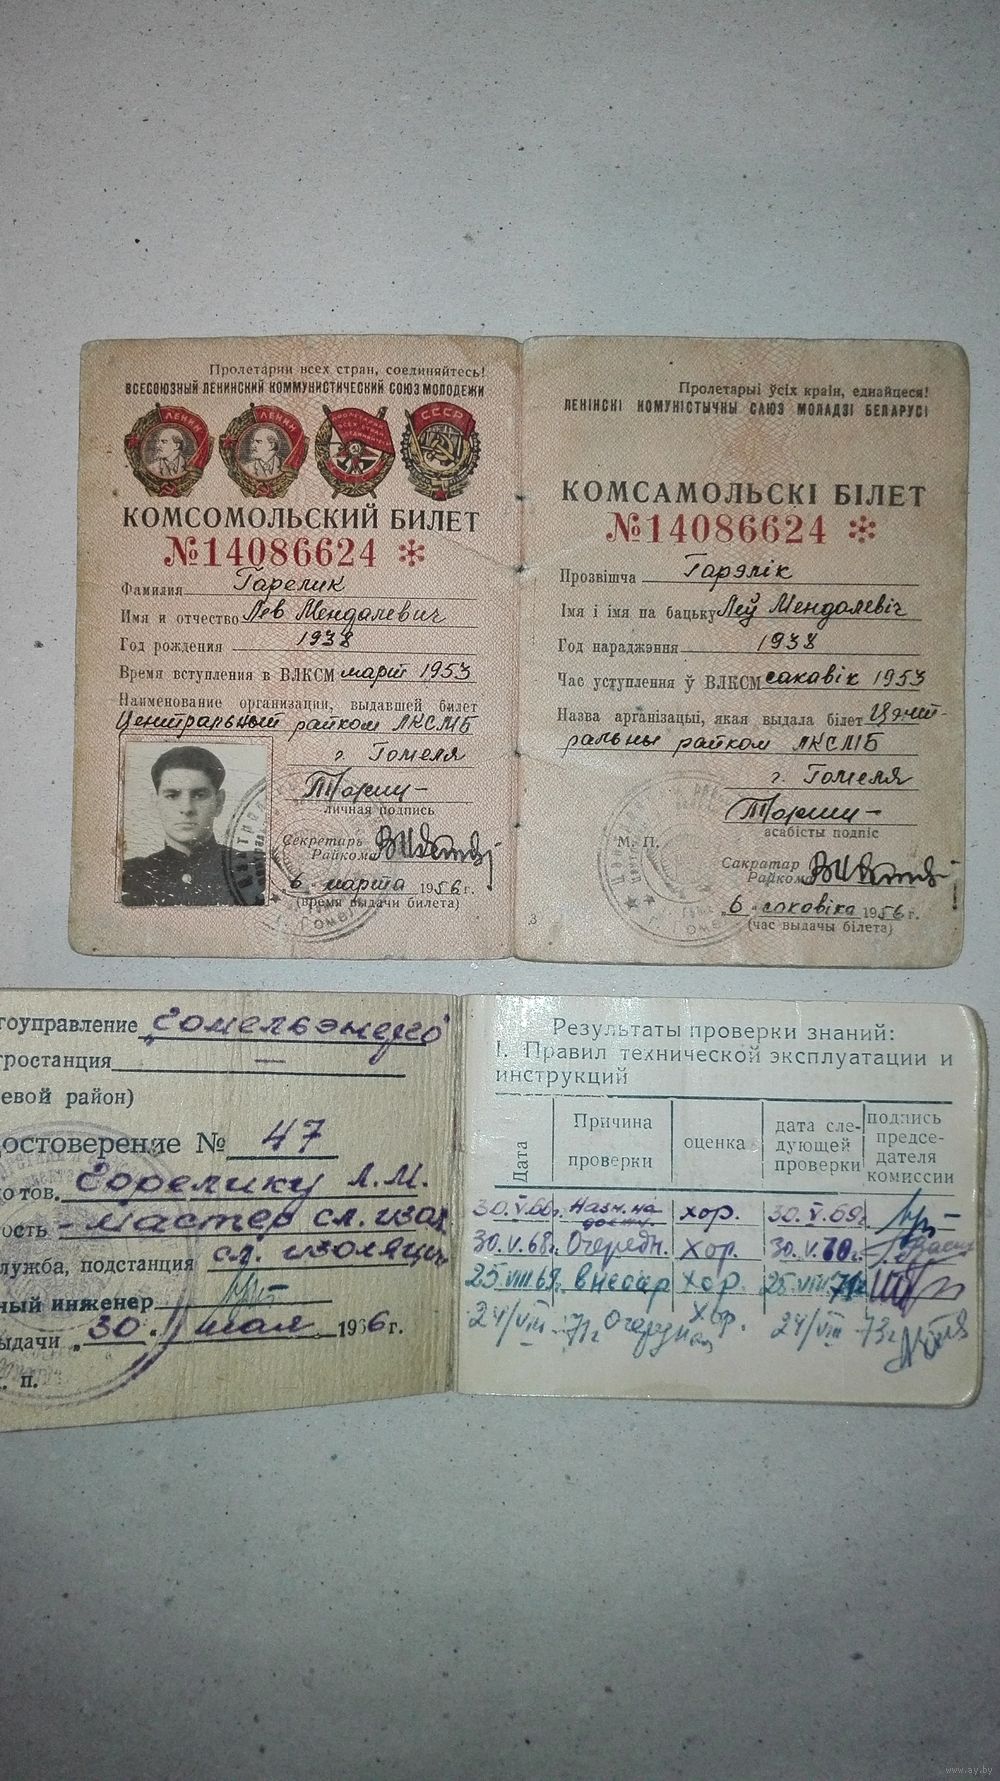 Пролетарии всех стран, соединяйтесь!
ВСЕСОЮЗНЫЙ ЛЕНИНСКИЙ КОММУНИСТИЧЕСКИЙ СОЮЗ МОЛОДЕЖИ
ЛЕНИН ЛЕНИН ПРОЛЕТАРИИ ВСЕХ СТРАН СОЕДИНЯЙТЕСЬ СССР
КОМСОМОЛЬСКИЙ БИЛЕТ
№14086624 *
Фамилия Гарелик
Имя и отчество Лев Мендалевич
Год рождения 1938
Время вступления в ВЛКСМ март 1953
Наименование организации, выдавшей билет
Центральный райком ЛКСМБ
г. Гомеля
личная подпись
Секретарь
Райкома
6 марта 1956 г.
(время выдачи билета)
Пролетарыі ўсіх краін, еднайцеся!
ЛЕНІНСКІ КОМУНІСТЫЧНЫ САЮЗ МОЛАДЗІ БЕЛАРУСІ
КОМСАМОЛЬСКІ БІЛЕТ
№14086624 *
Прозвішча Гарэлік
Імя і імя па бацьку Леў Мендалевіч
Год нараджэння 1938
Час уступлення ў ВЛКСМ сакавік 1953
Назва арганізацыі, якая выдала білет Цэнт-
ральны райком ЛКСМБ
г. Гомеля
асабісты подпіс
М. П.
Сакратар
Райкома
„6 " сакавіка 1956 г.
(час выдачы білета)
3
гоуправление „Гомельэнерго"
тростанция —
евой район)
достоверение № 47
о тов. Горелику Л.М.
ость - мастер сл. изол.
лужба, подстанция сл. изоляции
ный инженер
ыдачи „30." мая 1966 г.
. п.
Результаты проверки знаний:
I. Правил технической эксплуатации и
инструкций
Дата
Причина проверки
оценка
дата сле-
дующей
проверки
подпись
предсе-
дателя
комиссии
30.V.66г. Назн. на должн. хор. 30.V.69г.
30.V.68г. Очередн. хор. 30.V.70г.
25.VIII 69г. внеоч хор. 25.VIII 71г.
24/VIII-71г Очередная хор. 24/VIII-73г
www.ay.by